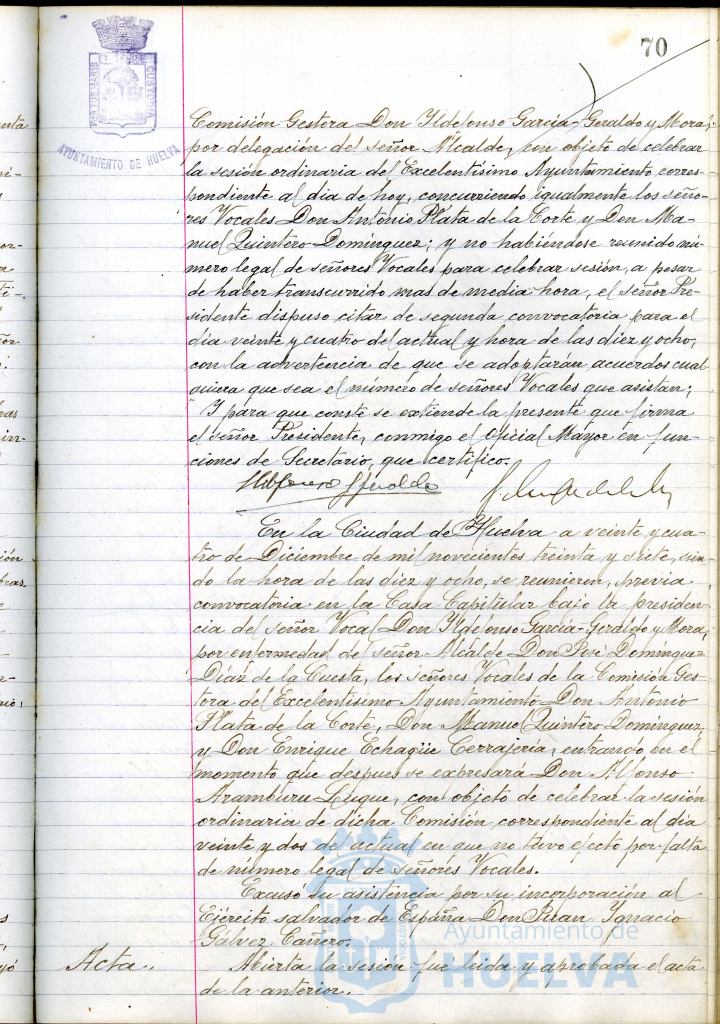 70
PORTUS MARIS ET TERRE CUSTODIA
AYUNTAMIENTO DE HUELVA
Comisión Gestora Don Ildefonso García-Geraldo y Mora,
por delegación del señor Alcalde, con objeto de celebrar
la sesión ordinaria del Excelentísimo Ayuntamiento corres-
pondiente al dia de hoy, concurriendo igualmente los seño-
res Vocales Don Antonio Plata de la Corte y Don Ma-
nuel Quintero Domínguez; y no habiéndose reunido nú-
mero legal de señores Vocales para celebrar sesión, a pesar
de haber transcurrido mas de media hora, el señor Pre-
sidente dispuso citar de segunda convocatoria para el
día veinte y cuatro del actual y hora de las diez y ocho,
con la advertencia de que se adoptarán acuerdos cual
quiera que sea el número de señores Vocales que asistan;
Y para que conste se extiende la presente que firma
el señor Presidente, conmigo el Oficial Mayor en fun-
ciones de Secretario, que certifico.
Ildefonso Geraldo
En la Ciudad de Huelva a veinte y cua-
tro de Diciembre de mil novecientos treinta y siete, sien-
do la hora de las diez y ocho, se reunieron, previa
convocatoria en la Casa Capitular bajo la presiden-
cia del señor Vocal Don Ildefonso García-Geraldo y Mora,
por enfermedad del señor Alcalde Don José Domínguez
Díaz de la Cuesta, los señores Vocales de la Comisión Ges-
tora del Excelentísimo Ayuntamiento Don Antonio
Plata de la Corte, Don Manuel Quintero Domínguez,
y Don Enrique Echagüe Cerrajeria, entrando en el
momento que despues se expresará Don Alfonso
Aramburu Luque, con objeto de celebrar la sesión
ordinaria de dicha Comisión, correspondiente al día
veinte y dos de actual en que no tuvo efecto por falta
de número legal de señores Vocales.
Excusó su asistencia por su incorporación al
Ejército salvador de España Don Juan Ignacio
Gálvez Cañero.
Acta. Abierta la sesión fué leida y aprobada el acta
de la anterior.
Ayuntamiento de
HUELVA